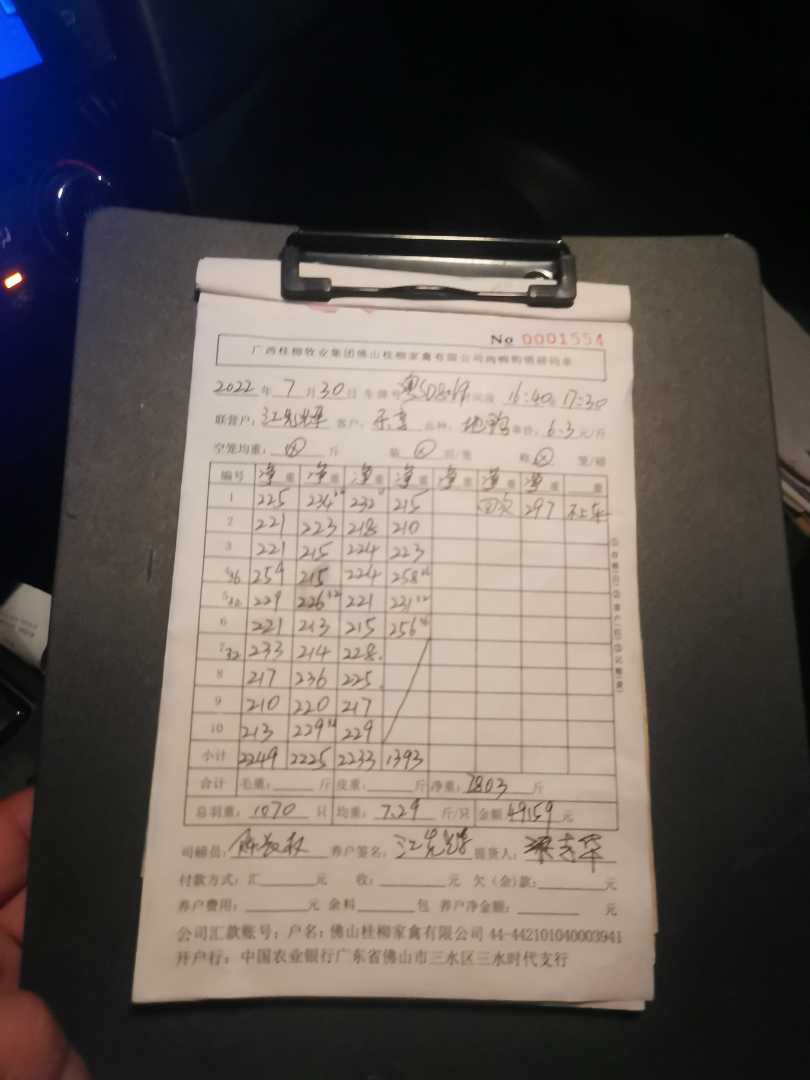 No 0001554
广西桂柳牧业集团佛山桂柳家禽有限公司肉鸭购销磅码单
2022 年 7 月 30 日 车牌号 时间段 16:40 17:30
联营户: 客户: 品种: 单价: 6.3 元/斤
空笼均重: 斤 装 只/笼 称 笼/磅
编号 净重 净重 净重 净重 净重 净重 净重 重
1 225 234 232 215 297
2 221 223 218 210
3 221 215 224 223
4 36 254 215 224 258
5 229 226 221 231
6 221 213 215 256
7 32 233 214 228
8 217 236 225
9 210 220 217
10 213 229 229
小计 2249 2225 2233 1393
合计 毛重: 斤 皮重: 斤 净重: 7803 斤
总羽重: 1070 只 均重: 7.29 斤/只 金额 49159 元
司磅员: 养户签名: 提货人:
付款方式: 汇 元 收: 元 欠(余)款: 元
养户费用: 元 余料 包 养户净金额: 元
公司汇款账号: 户名: 佛山桂柳家禽有限公司 44-442101040003941
开户行: 中国农业银行广东省佛山市三水区三水时代支行